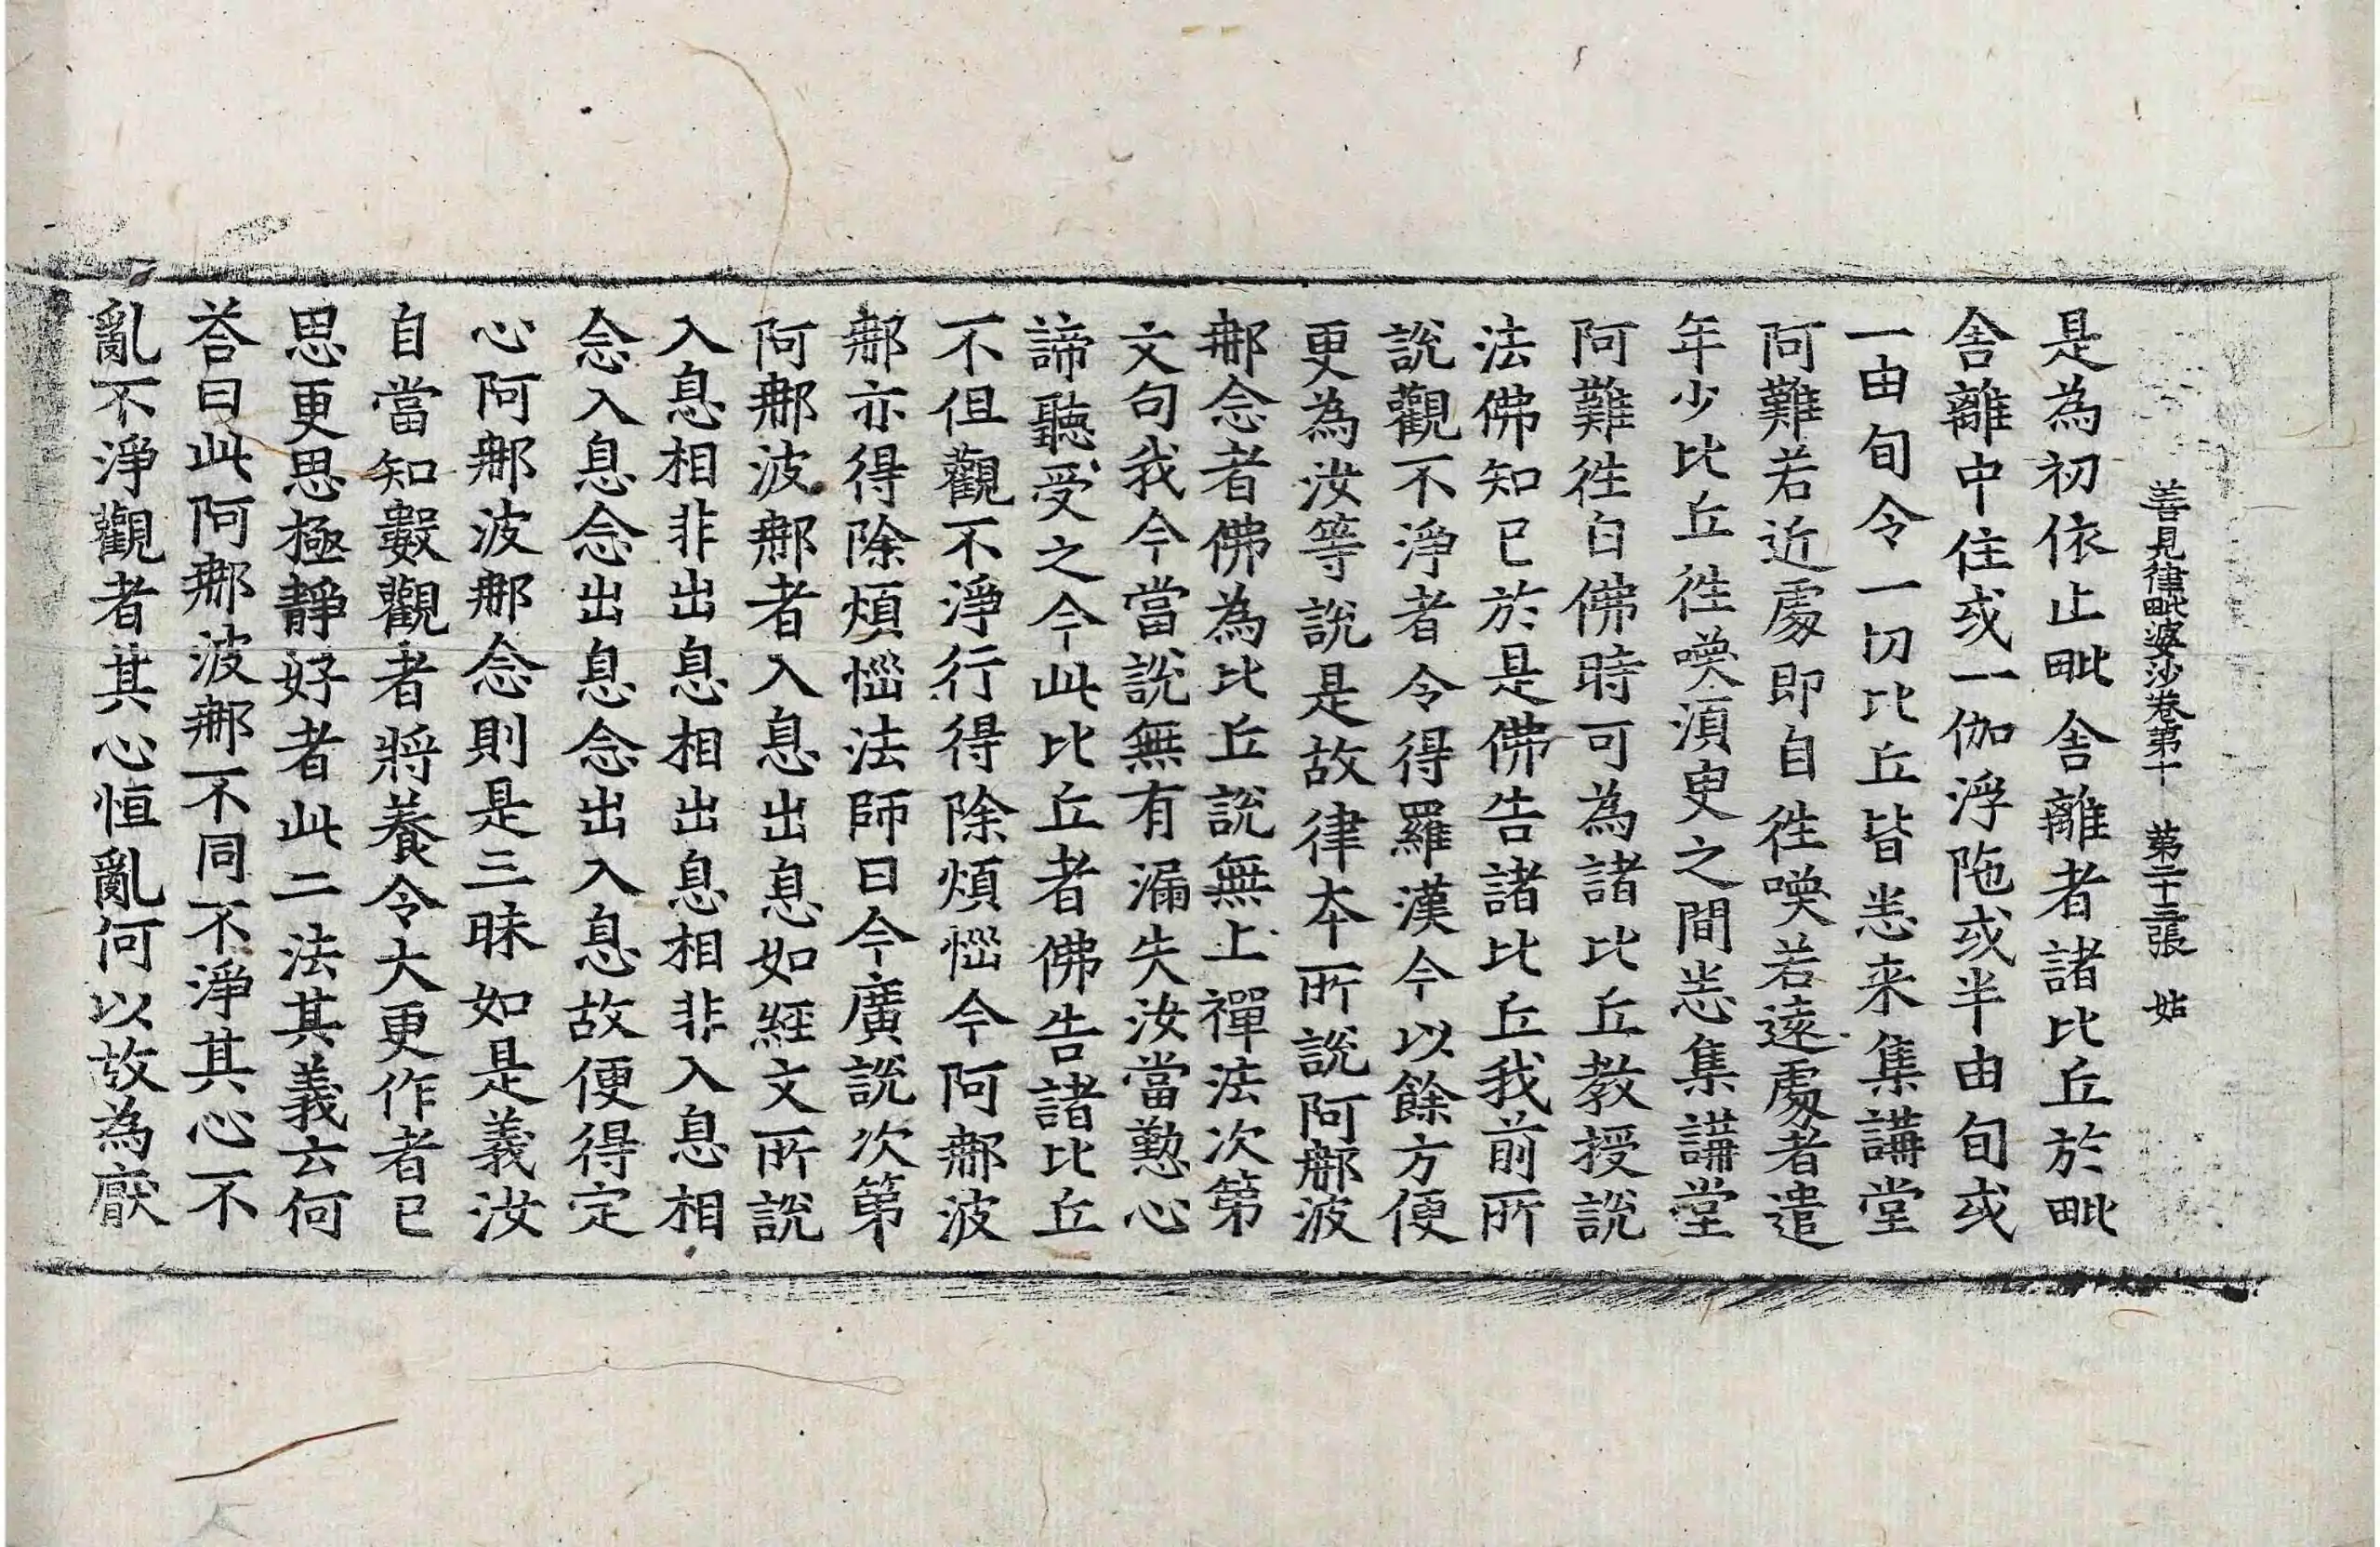 善見律毗婆沙卷第十 第二十三張 姑
是為初依止毗舍離者諸比丘於毗
舍離中住或一伽浮陁或半由旬或
一由旬令一切比丘皆悉来集講堂
阿難若近處即自徃喚若遠處者遣
年少比丘徃喚湏臾之間悉集講堂
阿難徃白佛時可為諸比丘教授說
法佛知已於是佛告諸比丘我前所
說觀不淨者令得羅漢今以餘方便
更為汝等說是故律本所說阿那波
那念者佛為比丘說無上禪法次第
文句我今當說無有漏失汝當懃心
諦聽受之今此比丘者佛告諸比丘
不但觀不淨行得除煩惱今阿那波
那亦得除煩惱法師曰今廣說次第
阿那波那者入息出息如經文所說
入息相非出息相出息相非入息相
念入息念出息念出入息故便得定
心阿那波那念則是三昧如是義汝
自當知數觀者將養令大更作者已
思更思極靜好者此二法其義云何
荅曰此阿那波那不同不淨其心不
亂不淨觀者其心恒亂何以故為厭